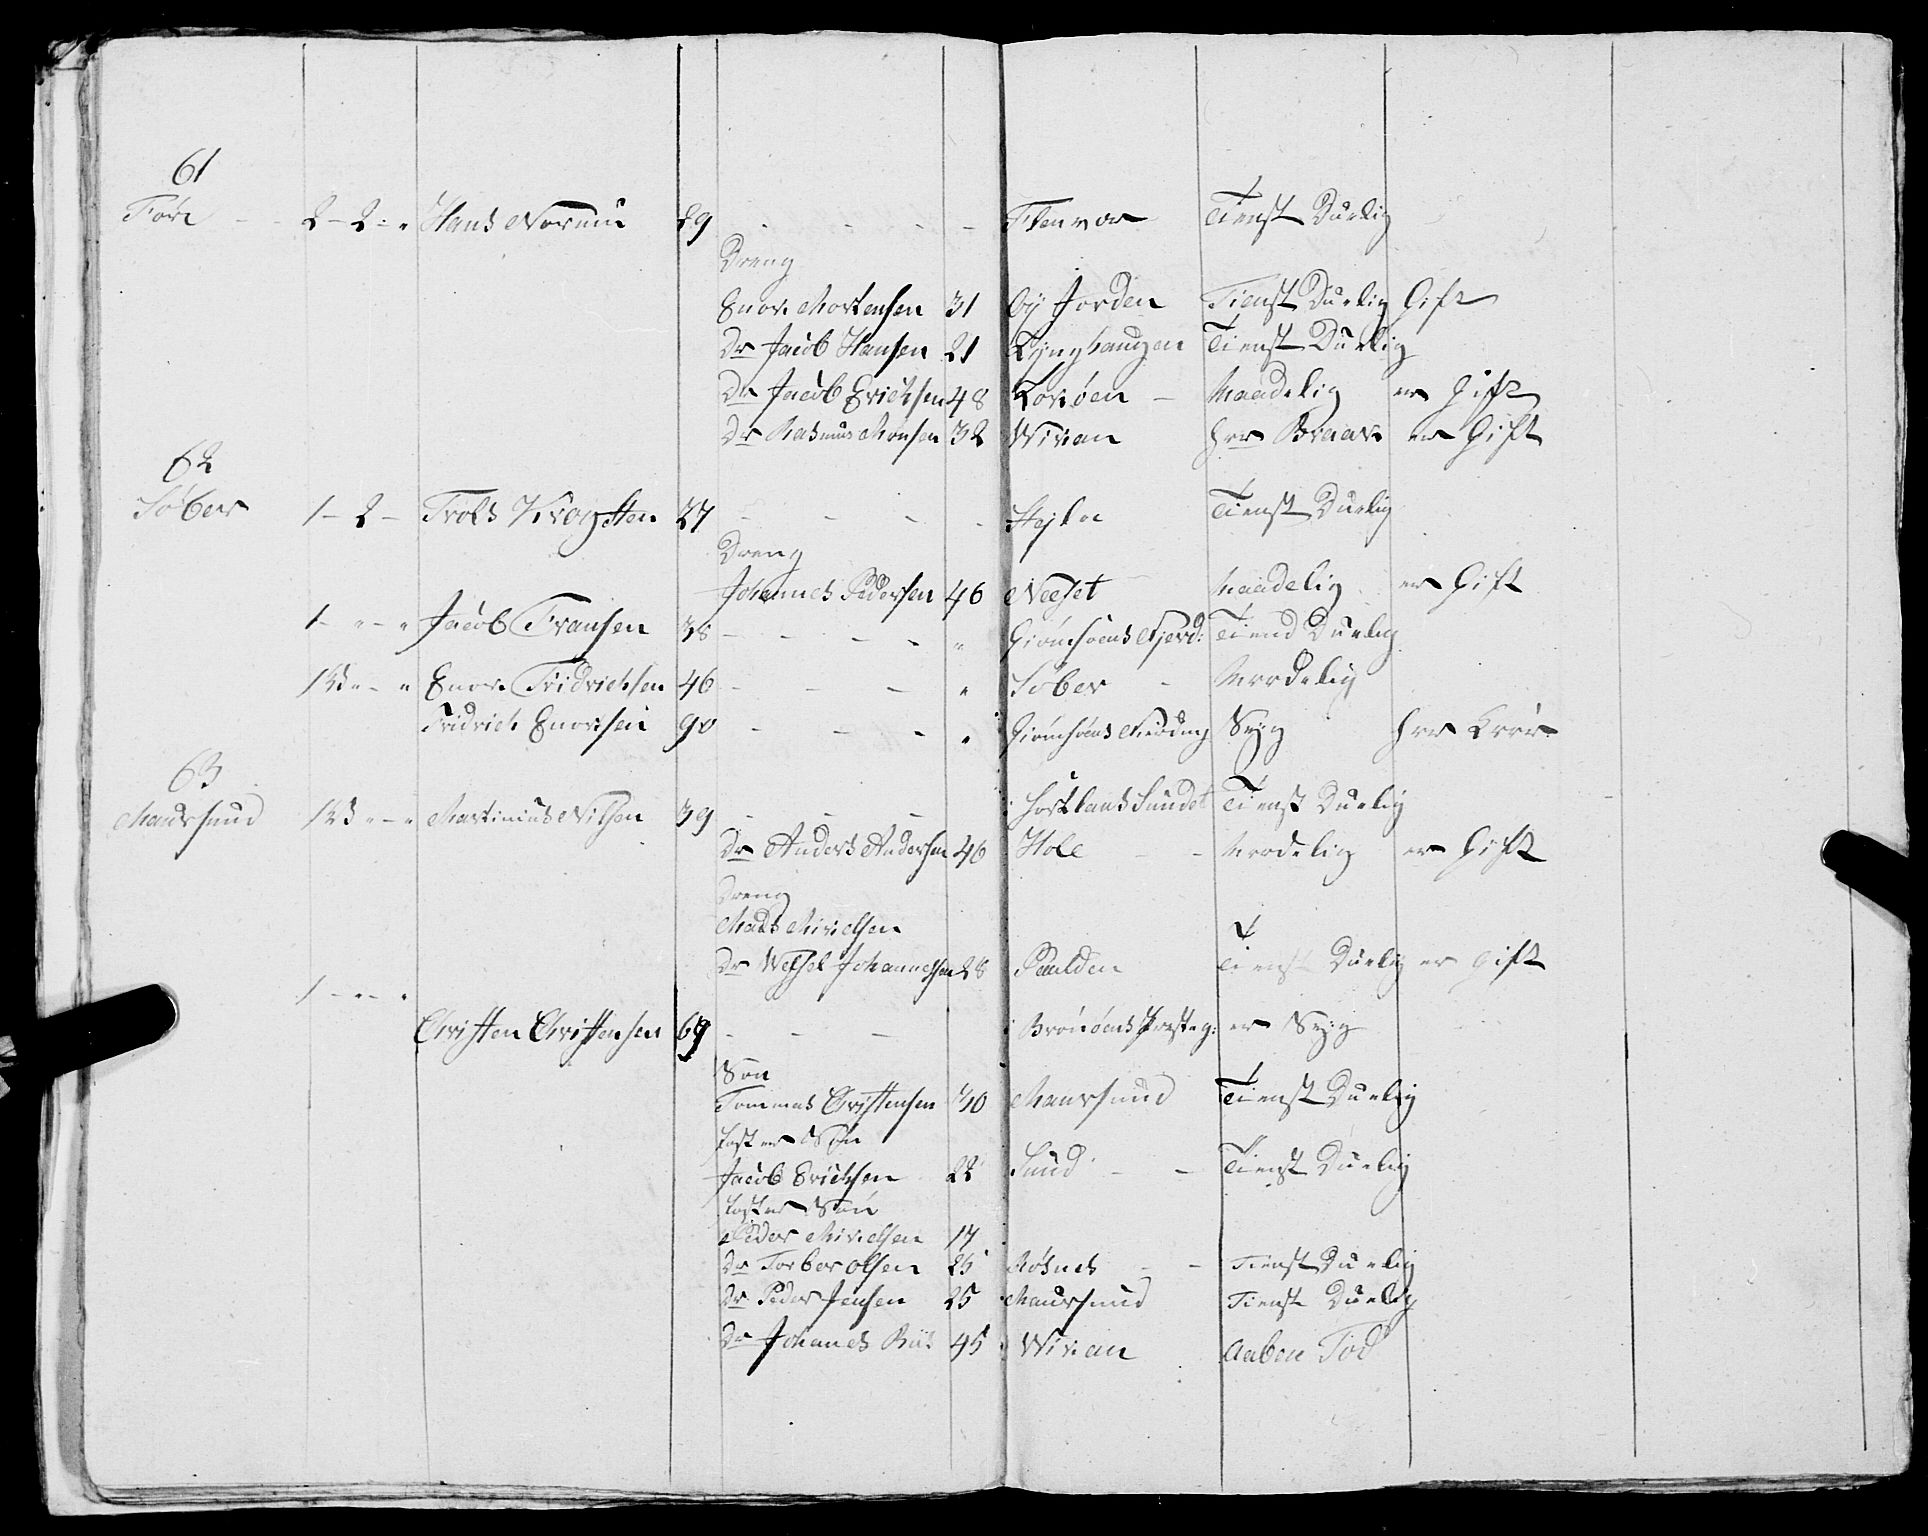 61
Före - - 2-2-" Hans Normii 29 - - - - Flenvor Tienst Duelig
Dreng
Enor. Mortensen 31 by Jorden Tienst Duelig Gift
Dr Jacob Hansen 21 Lynghaugen Tienst Duelig
Dr Jacob Erichsen 48 Korsøen - Maadelig er Gift
Dr Rasmus Monsen 32 Wikan her Braav er Gift
62
Søber 1-2- Trols Krogsten 27 - - - - Stejloe Tienst Duelig
Dreng
Johannes Pedersen 46 Neeset Maadelig er Gift
1-"-" Jacob Fransen 38 - - - - " Giømsøens Fjerd: Tiend Duelig
"-" Enor. Fridrichsen 46 - - - " Søber - Maadelig
Fridrich Enorsen 90 - - - " Giømsøens Fierding Syg her
63
Maursund "-" Martinius Nilsen 39 - - - Sundet Tienst Duelig
Dr Anders Andersen 46 Hole - - Maadelig er Gift
Dreng
Mads Mikelsen
Dr Wessel Johannesen 28 Paulden Tienst Duelig er Gift
1-"-"
Christen Christensen 69 - - - i Brønøens Presteg: er Syg
Søn
Tommas Christensen 40 Maursund Tienst Duelig
foster Søn
Jacob Erichsen 22 Sund - - Tienst Duelig
foster Søn
Peder Mikelsen 17
Dr Torber Olsen 25 Røsnes - - Tienst Duelig
Dr Peder Jensen 25 Maursund Tienst Duelig
Dr Johanes 45 Wikan Aaben Fod